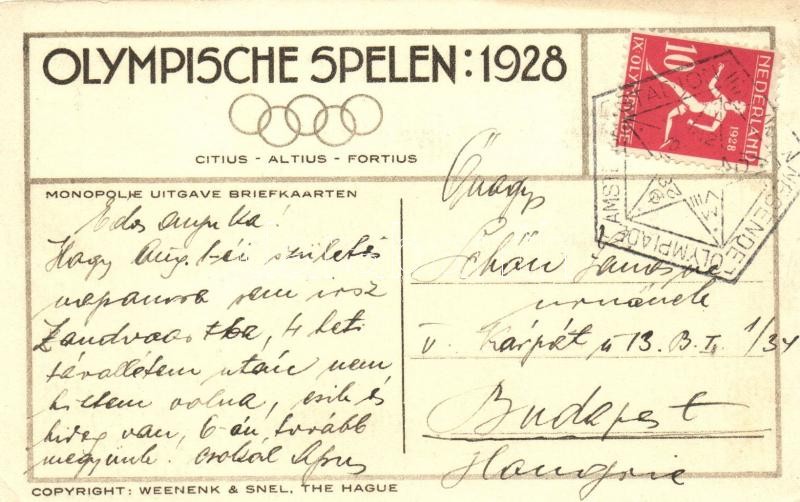 OLYMPISCHE SPELEN: 1928
CITIUS - ALTIUS - FORTIUS
NEDERLAND
10
IX·OLYMPIADE
1928
AMSTERDAM
OLYMPIADE
VIII
MONOPOLIE UITGAVE BRIEFKAARTEN
Édes
Hogy Aug. 1-éi születés
napomra nem írsz
Zandvoortba, 4 heti
távollétem után nem
hittem volna, esik és
hideg van, 6-án tovább
megyünk. csókol
Schön
urnának
V. Kárpát u 13. B. I. 1/34
Budapest
Hongrie
COPYRIGHT: WEENENK & SNEL, THE HAGUE